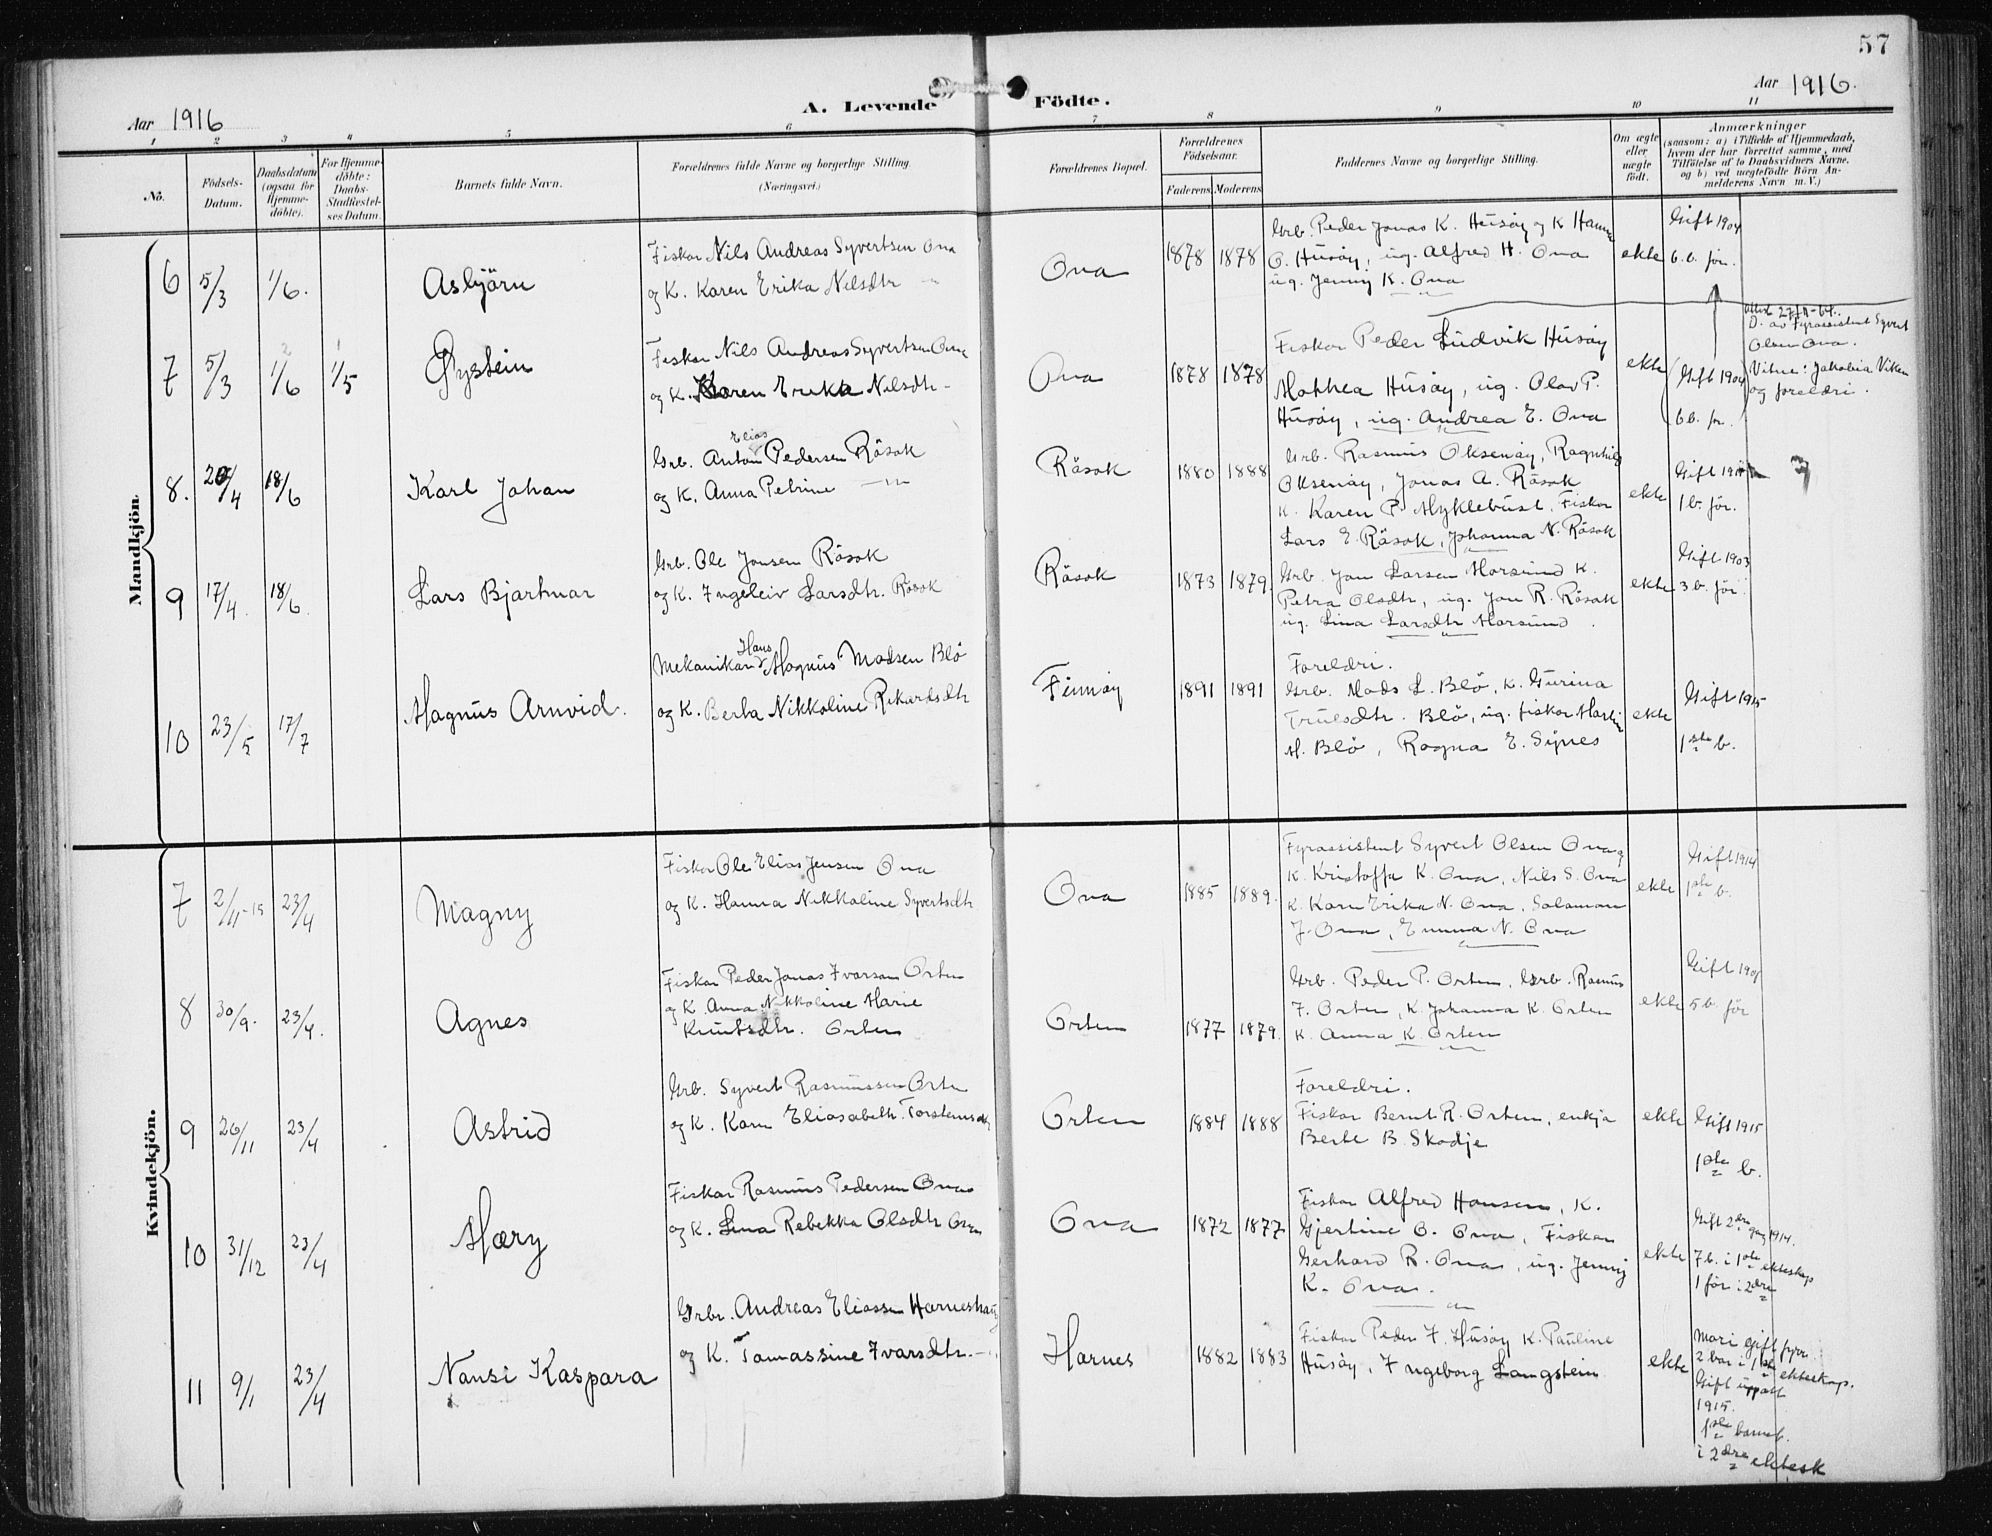 57
Aar 1916
A. Levende Födte.
Aar 1916.
1 2 3 4 5 6 7 8 9 10 11
No.
Födsels-
Datum.
Daabsdatum
(ogsaa for
Hjemme-
döbte).
For Hjemme-
döbte:
Daabs-
Stadfæstel-
ses Datum.
Barnets fulde Navn.
Forældrenes fulde Navne og borgerlige Stilling.
(Næringsvei.)
Forældrenes Bopæl.
Forældrenes
Födselsaar.
Faderens Moderens
Faddernes Navne og borgerlige Stilling.
Om ægte
eller
uægte
födt.
Anmærkninger
(saasom: a) i Tilfælde af Hjemmedaab,
hvem der har forrettet samme, med
Tilföielse af to Daabsvidners Navne,
og b) ved uægtefödte Börn An-
melderens Navn m. V.)
Mandkjön.
6 5/3 1/6. Asbjörn
Fiskar Nils Andreas Syvertsen Ona
og K. Karen Erika Nilsdtr —"—
Ona 1878 1878
Grb. Peder Jonas K. Husöy og K Hanna
O. Husöy, ug. Alfred H. Ona
ug. Jenny K. Ona
ekte
Gift 1904
6. b. för.
7 5/3 1/6 1/5 Øystein
Fiskar Nils Andreas Syvertsen Ona
og K. Karen Erika Nilsdtr —
Ona 1878 1878
Fiskar Peder Ludvik Husöy
Mathea Husöy, ug. Olav P.
Husöy, ug. Andrea E. Ona
ekte
Gift 1904
6 b. för.
D. av Fyrassistent Syvert
Olsen Ona.
Vitne: Jakobia Viken
og foreldri.
8. 20/4 18/6 Karl Johan
Elias
Grb. Anton Pedersen Räsok
og K. Anna Petrine —"—
Räsok 1880 1888
Grb. Rasmus Oksenöy, Ragnhild
Oksenöy, Jonas A. Räsok
K. Karen P. Myklebust, Fiskar
Lars E. Räsok, Johanna N. Räsok
ekte
1 b. för.
9 17/4. 18/6. Lars Bjartmar
Grb. Ole Jonsen Räsok
og K. Ingeleiv Larsdtr. Räsok
Räsok 1873 1879.
Grb. Jon Larsen Morsund K.
Petra Olsdtr, ug. Jon R. Räsok
ug. Lina Larsdtr Morsund.
ekte
Gift 1903
3 b. för.
10 23/5 17/7 Magnus Arnvid.
Hans
Mekanikar Magnus Madsen Blö
og K. Berta Nikkoline Rikardsdtr
Finnöy 1891 1891
Foreldri.
Grb. Mads L. Blö, K. Gurina
Truelsdtr. Blö, ug. fiskar Martin
M. Blö, Ragna E. Synes
ekte
Gift 1915
1ste b.
Kvindekjön.
7 2/11-15 23/4 Magny
Fiskar Ole Elias Jensen Ona
og K. Hanna Nikkoline Syvertsdtr
Ona 1885 1889.
Fyrassistent Syvert Olsen Ona og
K. Kristoffa K. Ona, Nils S. Ona
K. Karn Erika N. Ona, Salamon
J. Ona, Emma N. Ona
ekte
Gift 1914
1ste b.
8 30/9. 23/4. Agnes
Fiskar Peder Jonas Ivarsen Orten
og K. Anna Nikkoline Marie
Knutsdtr. Orten
Orten 1877 1879.
Grb. Peder P. Orten, Grb. Rasmus
J. Orten, K. Johanna K. Orten
K. Anna K. Orten
ekte
5 b. för
9 26/11 23/4 Astrid
Grb. Syvert Rasmussen Orten
og K. Karn Eliasabeth Torstensdtr
Orten 1884 1888
Foreldri.
Fiskar Bernt R. Orten, enkja
Berte B. Skodje
ekte
Gift 1915
1ste b.
10 31/12 23/4 Mæry
Fiskar Rasmus Pedersen Ona
og K. Lina Rebekka Olsdtr Ona
Ona 1872 1877
Fiskar Alfred Hansen, K.
Gjertine O. Ona, Fiskar
Gerhard R. Ona, ug. Jenny
K. Ona.
ekte
Gift 2dre gang 1914.
7 b. i 1ste ekteskap
1 för i 2dre
11 9/1 23/4 Nansi Kaspara
Grbr. Andreas Eliassen Harneshaug
og K. Tomassine Ivarsdtr. —"—
Harnes 1882 1883
Fiskar Peder J. Husöy K. Pauline
Husöy, Ingeborg Langstein
ekte
Mori gift fyrr.
2 bar i 1ste ekteskap.
Gift uppatt
1915.
1ste barnet.
i 2dre ektesk